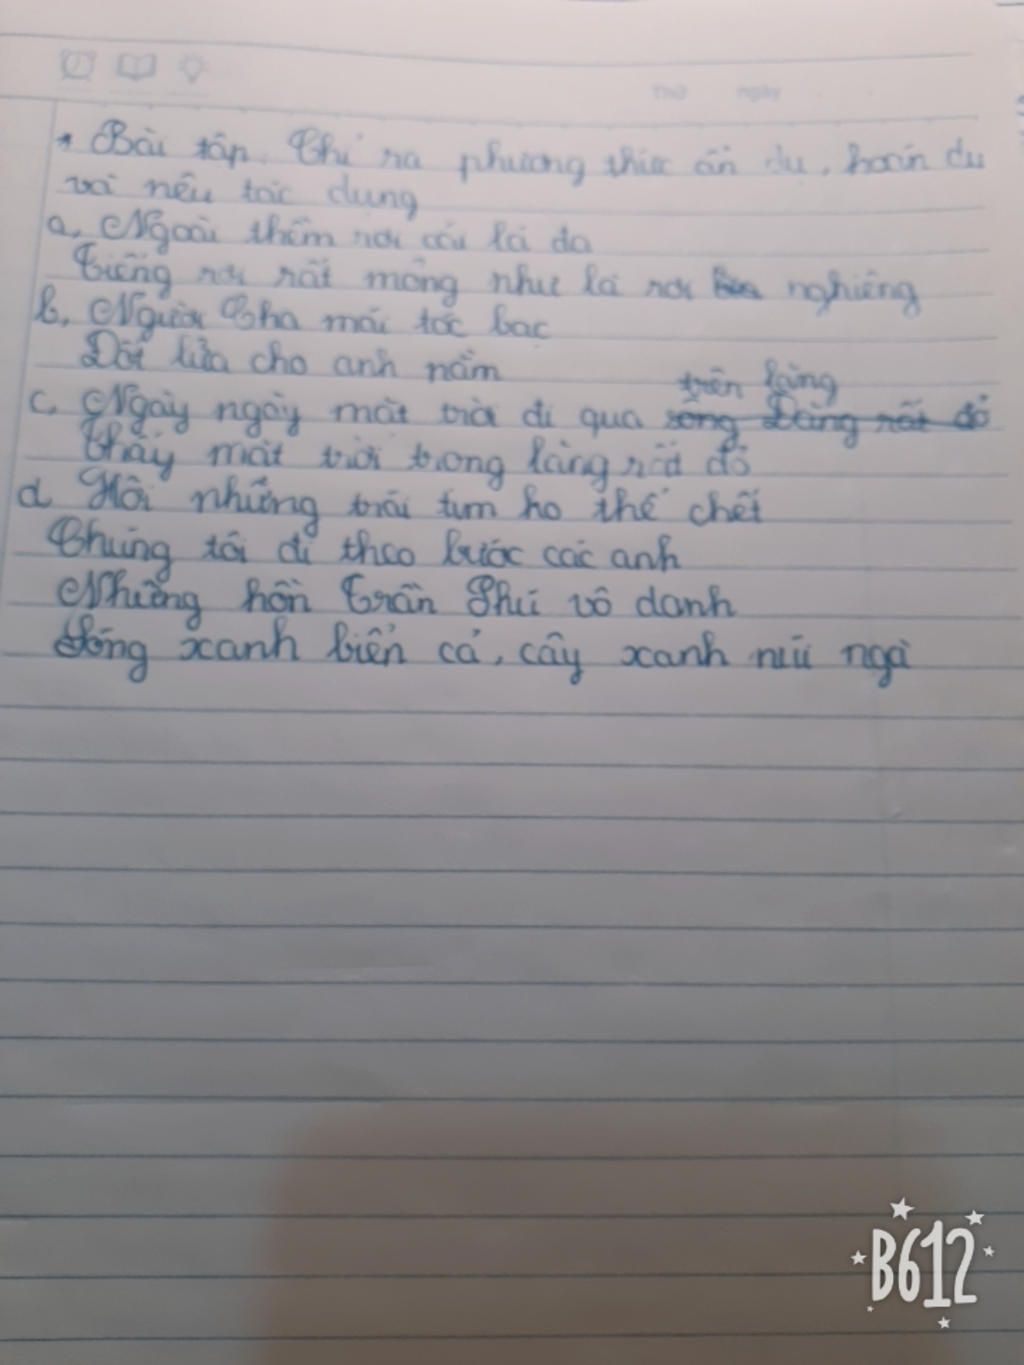 Thứ ngày
* Bài tập. Chỉ ra phương thức ẩn dụ, hoán dụ
và nêu tác dụng
a, Ngoài thềm rơi cái lá đa
Tiếng rơi rất mỏng như là rơi nghiêng
b, Người Cha mái tóc bạc
Đốt lửa cho anh nằm
trên lăng
c, Ngày ngày mặt trời đi qua sông Đàng rất đỏ
Thấy mặt trời trong lăng rất đỏ
d Hỡi những trái tim ko thể chết
Chúng tôi đi theo bước các anh
Những hồn Trần Phú vô danh
Sóng xanh biển cả, cây xanh núi ngà
B612